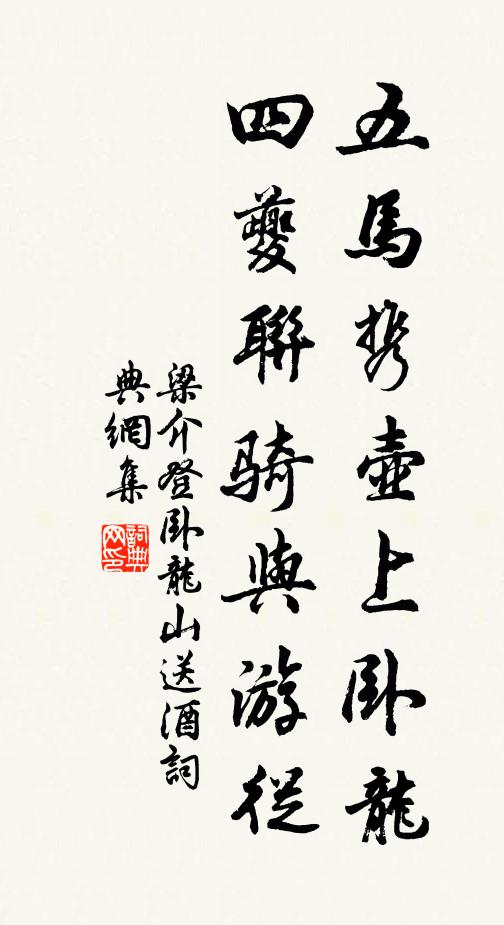 五馬携壺上卧龍
四夔聯騎與游從
梁介登卧龍山送酒詞
典網集
詞典
网印